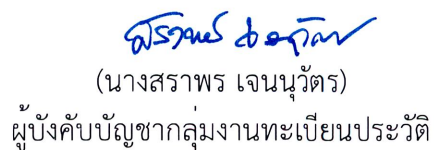 (นางสราพร เจนนุวัตร)
ผู้บังคับบัญชากลุ่มงานทะเบียนประวัติ